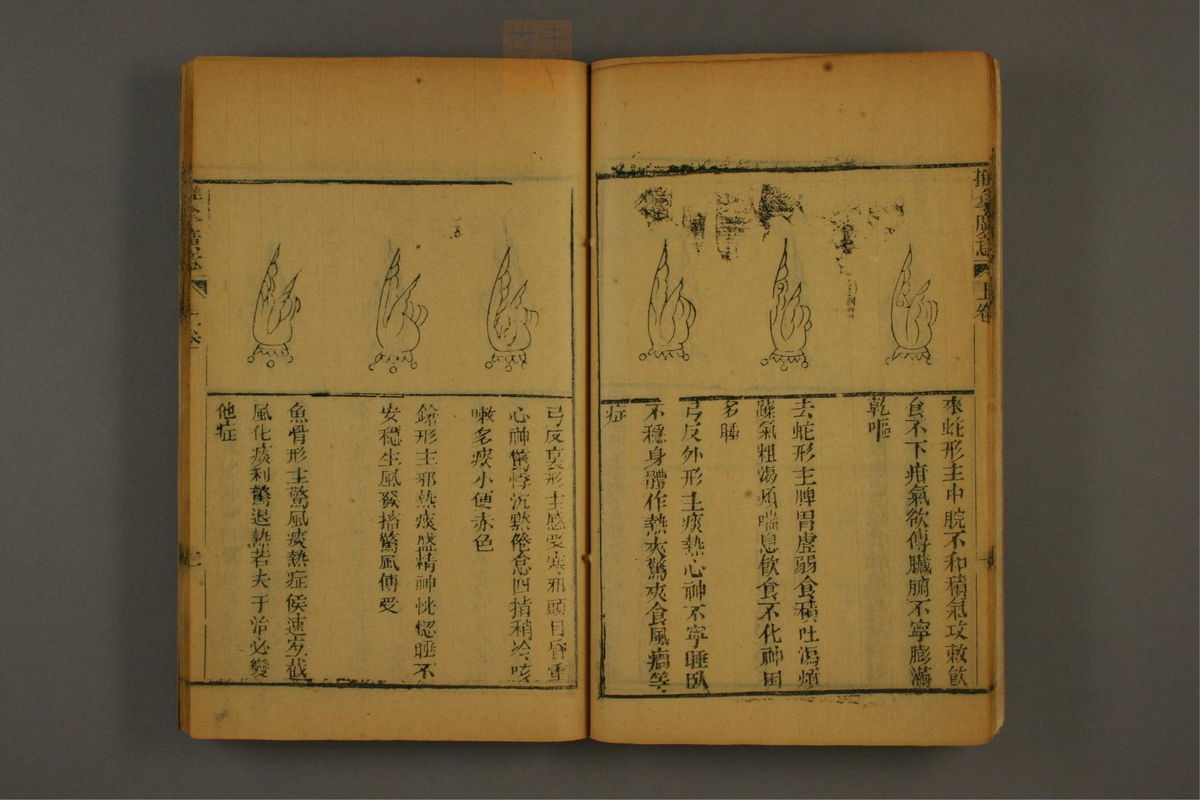 推拿廣意 上卷
來蛇形主中脘不和積氣攻敕飲
食不下疳氣欲傳臟腑不寧膨滿
乾嘔
去蛇形主脾胃虛弱食積吐瀉煩
躁氣粗渴煩喘息飲食不化神困
多睡
弓反外形主痰熱心神不寧睡臥
不穩身體作熱夾驚夾食風癇等
症
弓反裏形主感受寒邪頭目昏重
心神驚悸沉默倦怠四指稍冷咳
嗽多痰小便赤色
鎗形主邪熱痰盛精神恍惚睡不
安穩生風發搐驚風傳受
魚骨形主驚風痰熱症候速宜截
風化痰利驚退熱若夫于治必變
他症